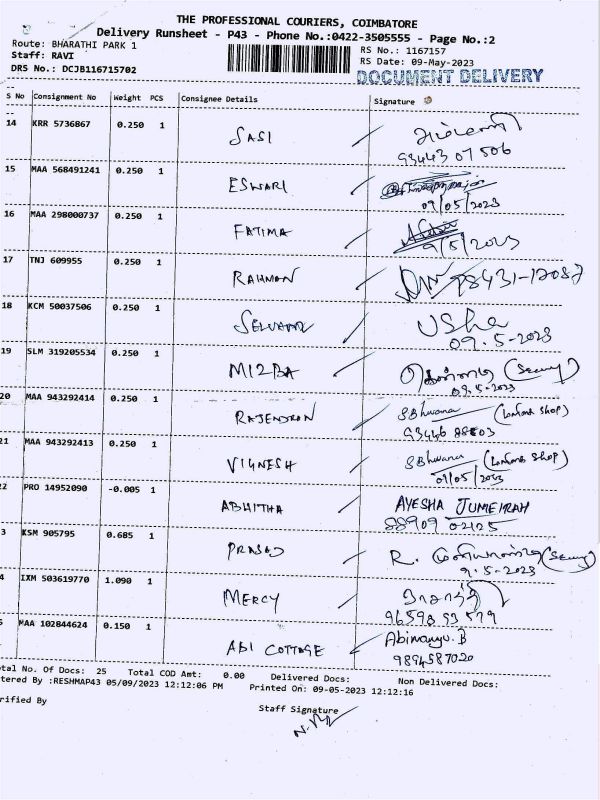 THE PROFESSIONAL COURIERS, COIMBATORE
Delivery Runsheet - P43 - Phone No.:0422-3505555 - Page No.:2
Route: BHARATHI PARK 1 RS No.: 1167157
Staff: RAVI RS Date: 09-May-2023
DRS No.: DCJB116715702 DOCUMENT DELIVERY
S No Consignment No Weight PCS Consignee Details Signature
14 KRR 5736867 0.250 1 SASI
93443 07506
15 MAA 568491241 0.250 1 ESWARI
09/05/2023
16 MAA 298000737 0.250 1 FATIMA
9/5/2023
17 TNJ 609955 0.250 1 RAHMAN
18 KCM 50037506 0.250 1 USha
09.5-2023
19 SLM 319205534 0.250 1 MIZBA
09.5-2023
20 MAA 943292414 0.250 1 RAJENDRAN SBhuvana
21 MAA 943292413 0.250 1 VIGNESH SBhuvana
09/05/2023
22 PRO 14952090 -0.005 1 ABHITHA AYESHA JUMEIRAH
88909 02125
3 KSM 905795 0.685 1 PRASAD R.
9.5-2023
4 IXM 503619770 1.090 1 MERCY
5 MAA 102844624 0.150 1 ABI COTTAGE Abimanyu.B
9894587020
otal No. Of Docs: 25 Total COD Amt: 0.00 Delivered Docs: Non Delivered Docs:
tered By :RESHMAP43 05/09/2023 12:12:06 PM Printed On: 09-05-2023 12:12:16
rified By
Staff Signature